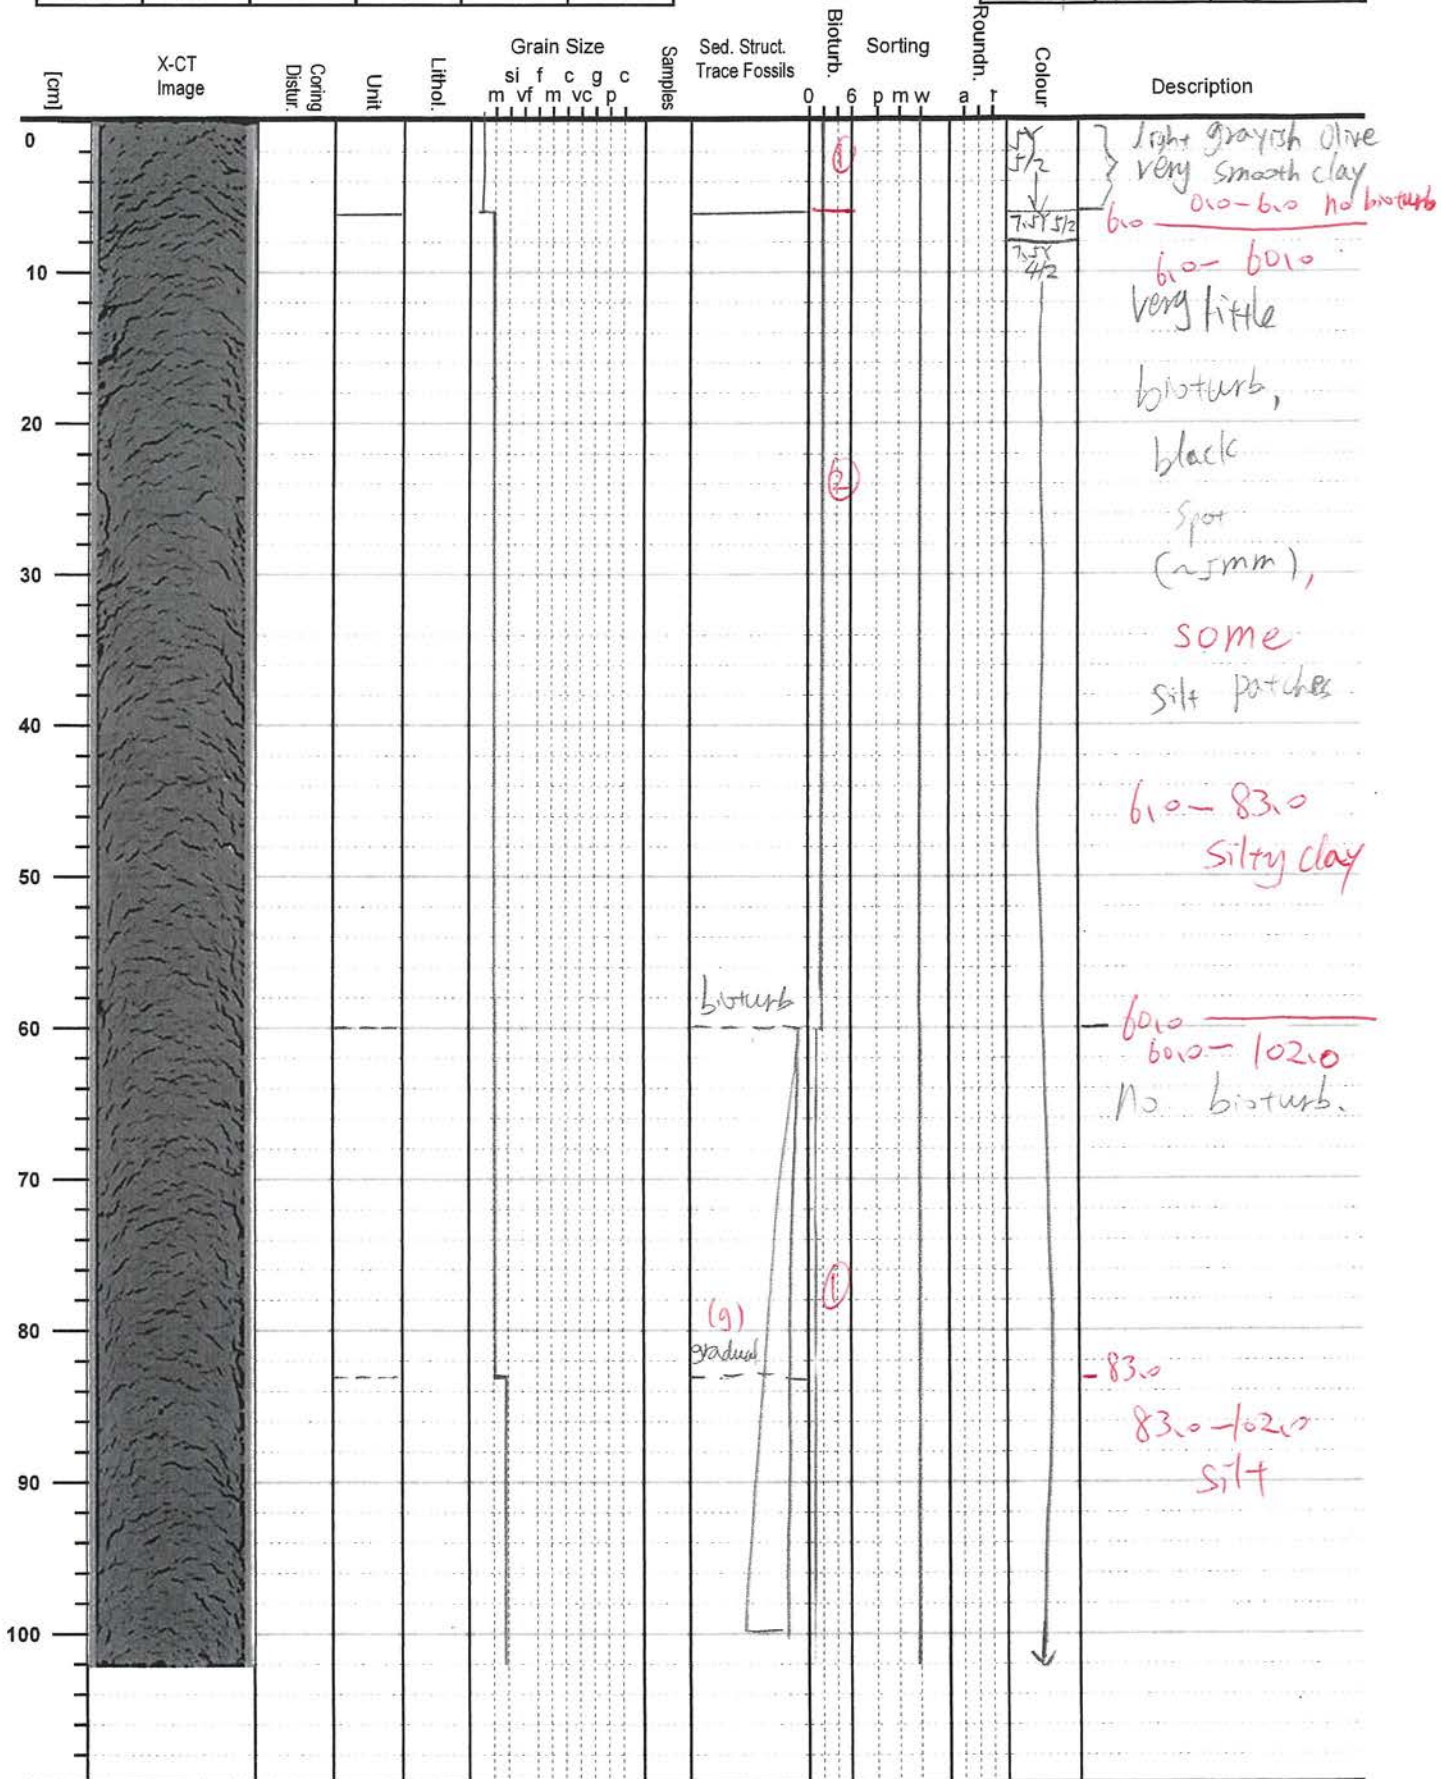 [cm]
X-CT
Image
Coring
Distur.
Unit
Lithol.
Grain Size
si f c g c
m vf m vc p
Samples
Sed. Struct.
Trace Fossils
Bioturb.
0 6
Sorting
p m w
Roundn.
a r
Colour
Description
0
10
20
30
40
50
60
70
80
90
100
①
②
①
bioturb
(g)
gradual
5Y
5/2
7.5Y 5/2
7.5Y
4/2
light grayish olive
very smooth clay
0.0-6.0 no bioturb
6.0
6.0- 60.0
very little
bioturb,
black
spot
(~5mm),
some
silt patches
6.0-83.0
Silty clay
60.0
60.0- 102.0
no bioturb.
83.0
83.0-102.0
Silt